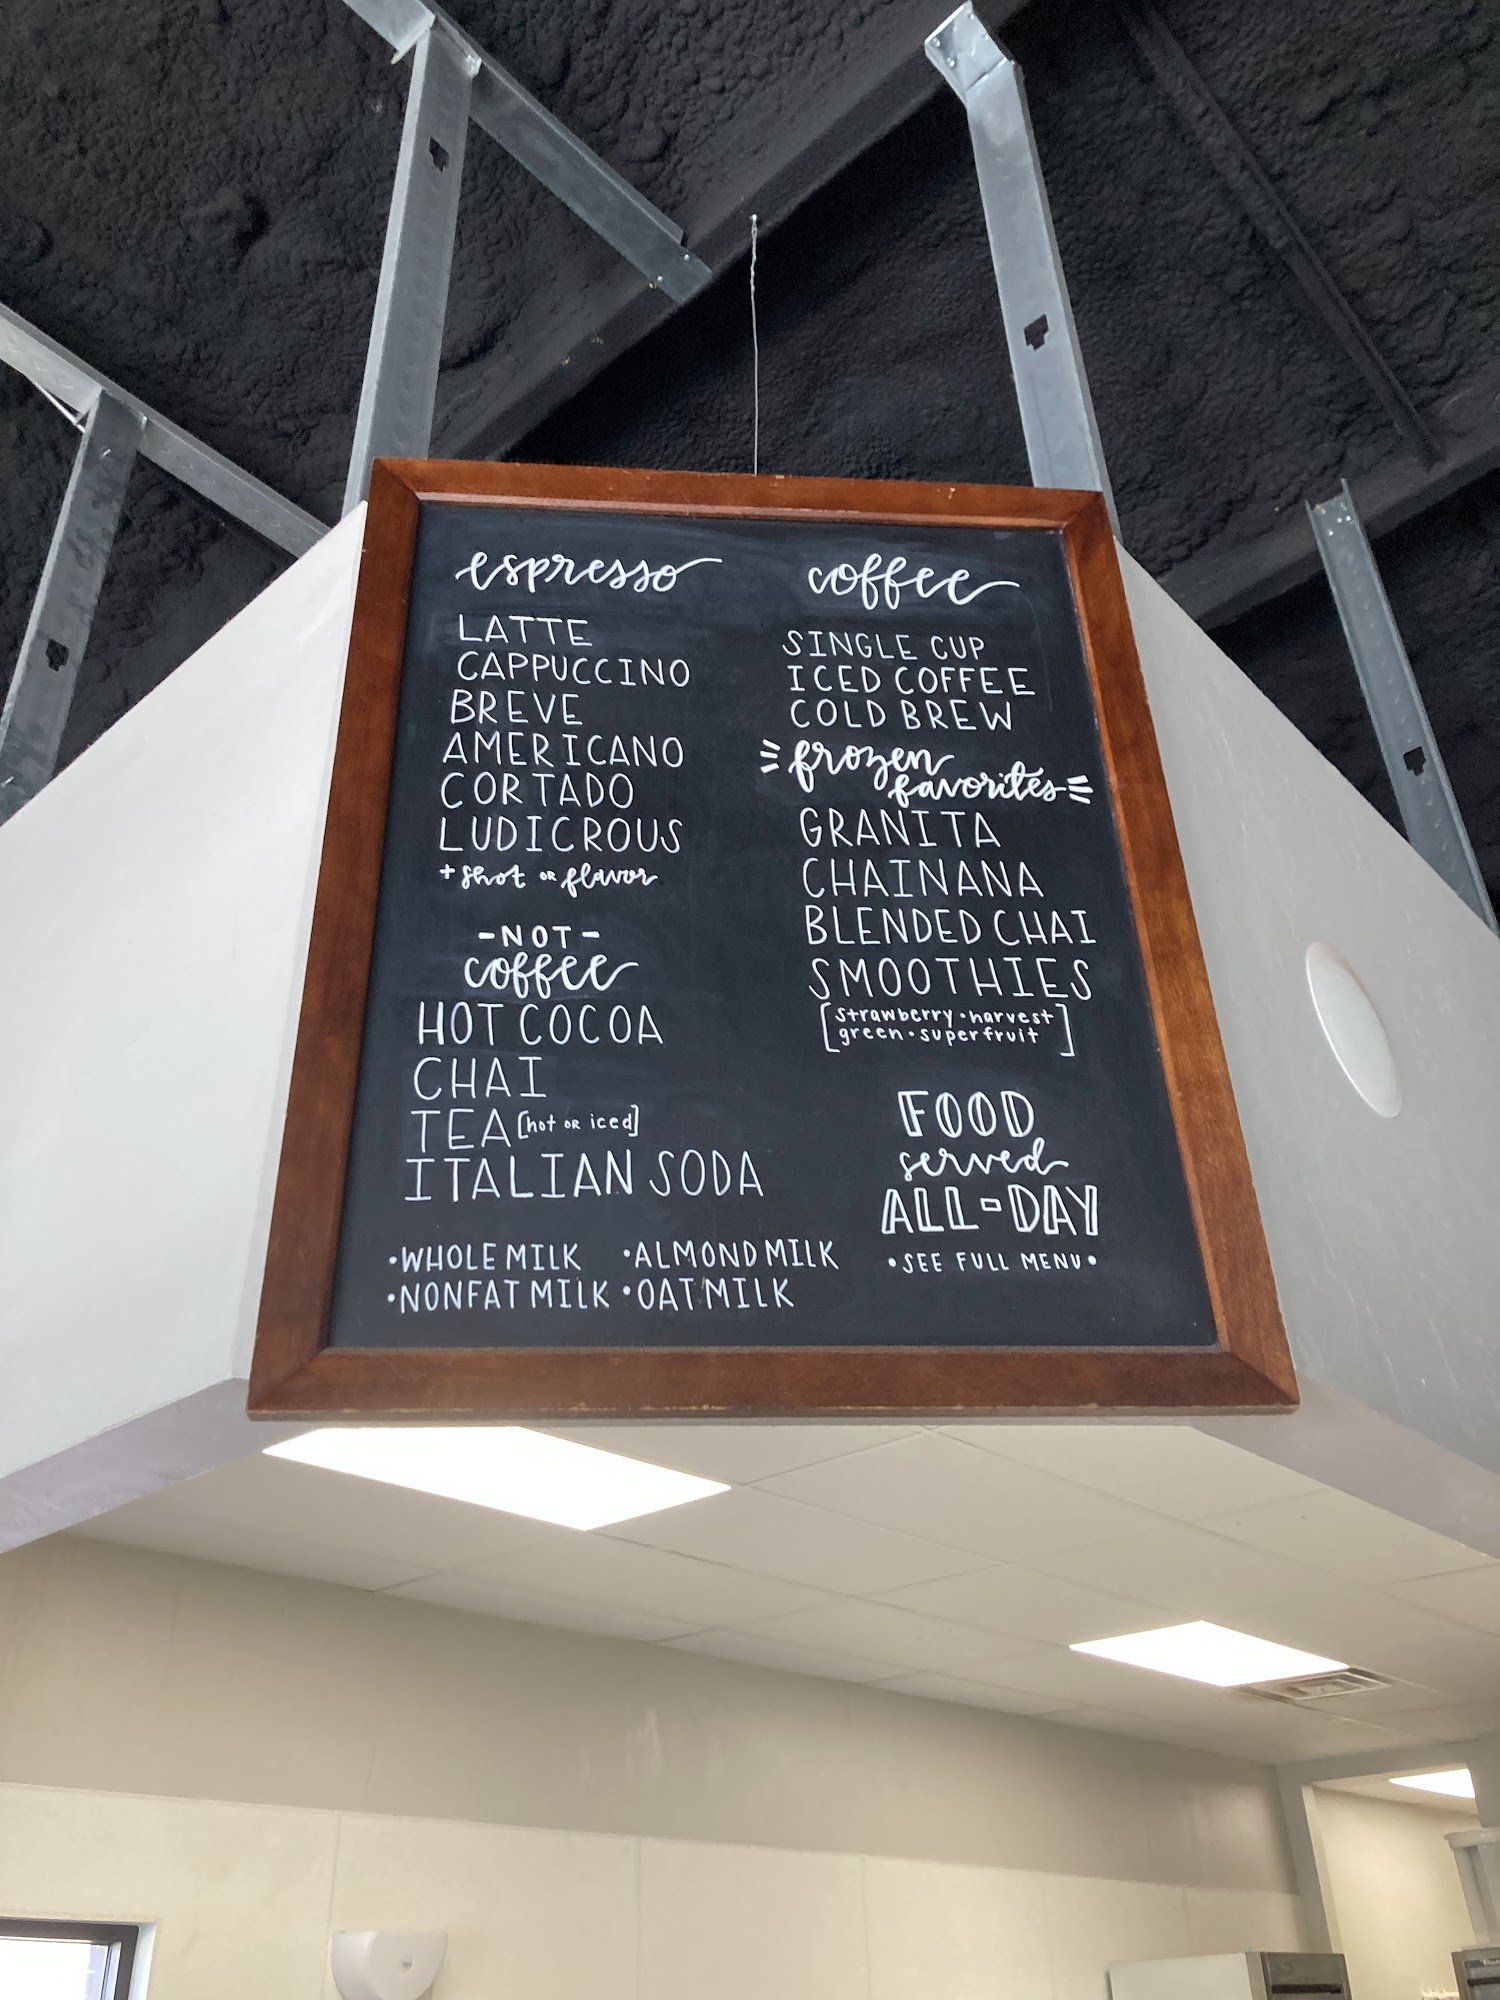 espresso
LATTE
CAPPUCCINO
BREVE
AMERICANO
CORTADO
LUDICROUS
+ shot OR flavor
-NOT-
coffee
HOT COCOA
CHAI
TEA [hot OR iced]
ITALIAN SODA
•WHOLE MILK •ALMOND MILK
•NONFAT MILK •OAT MILK
coffee
SINGLE CUP
ICED COFFEE
COLD BREW
frozen
favorites
GRANITA
CHAINANA
BLENDED CHAI
SMOOTHIES
[strawberry • harvest
green • superfruit]
FOOD
served
ALL-DAY
•SEE FULL MENU•